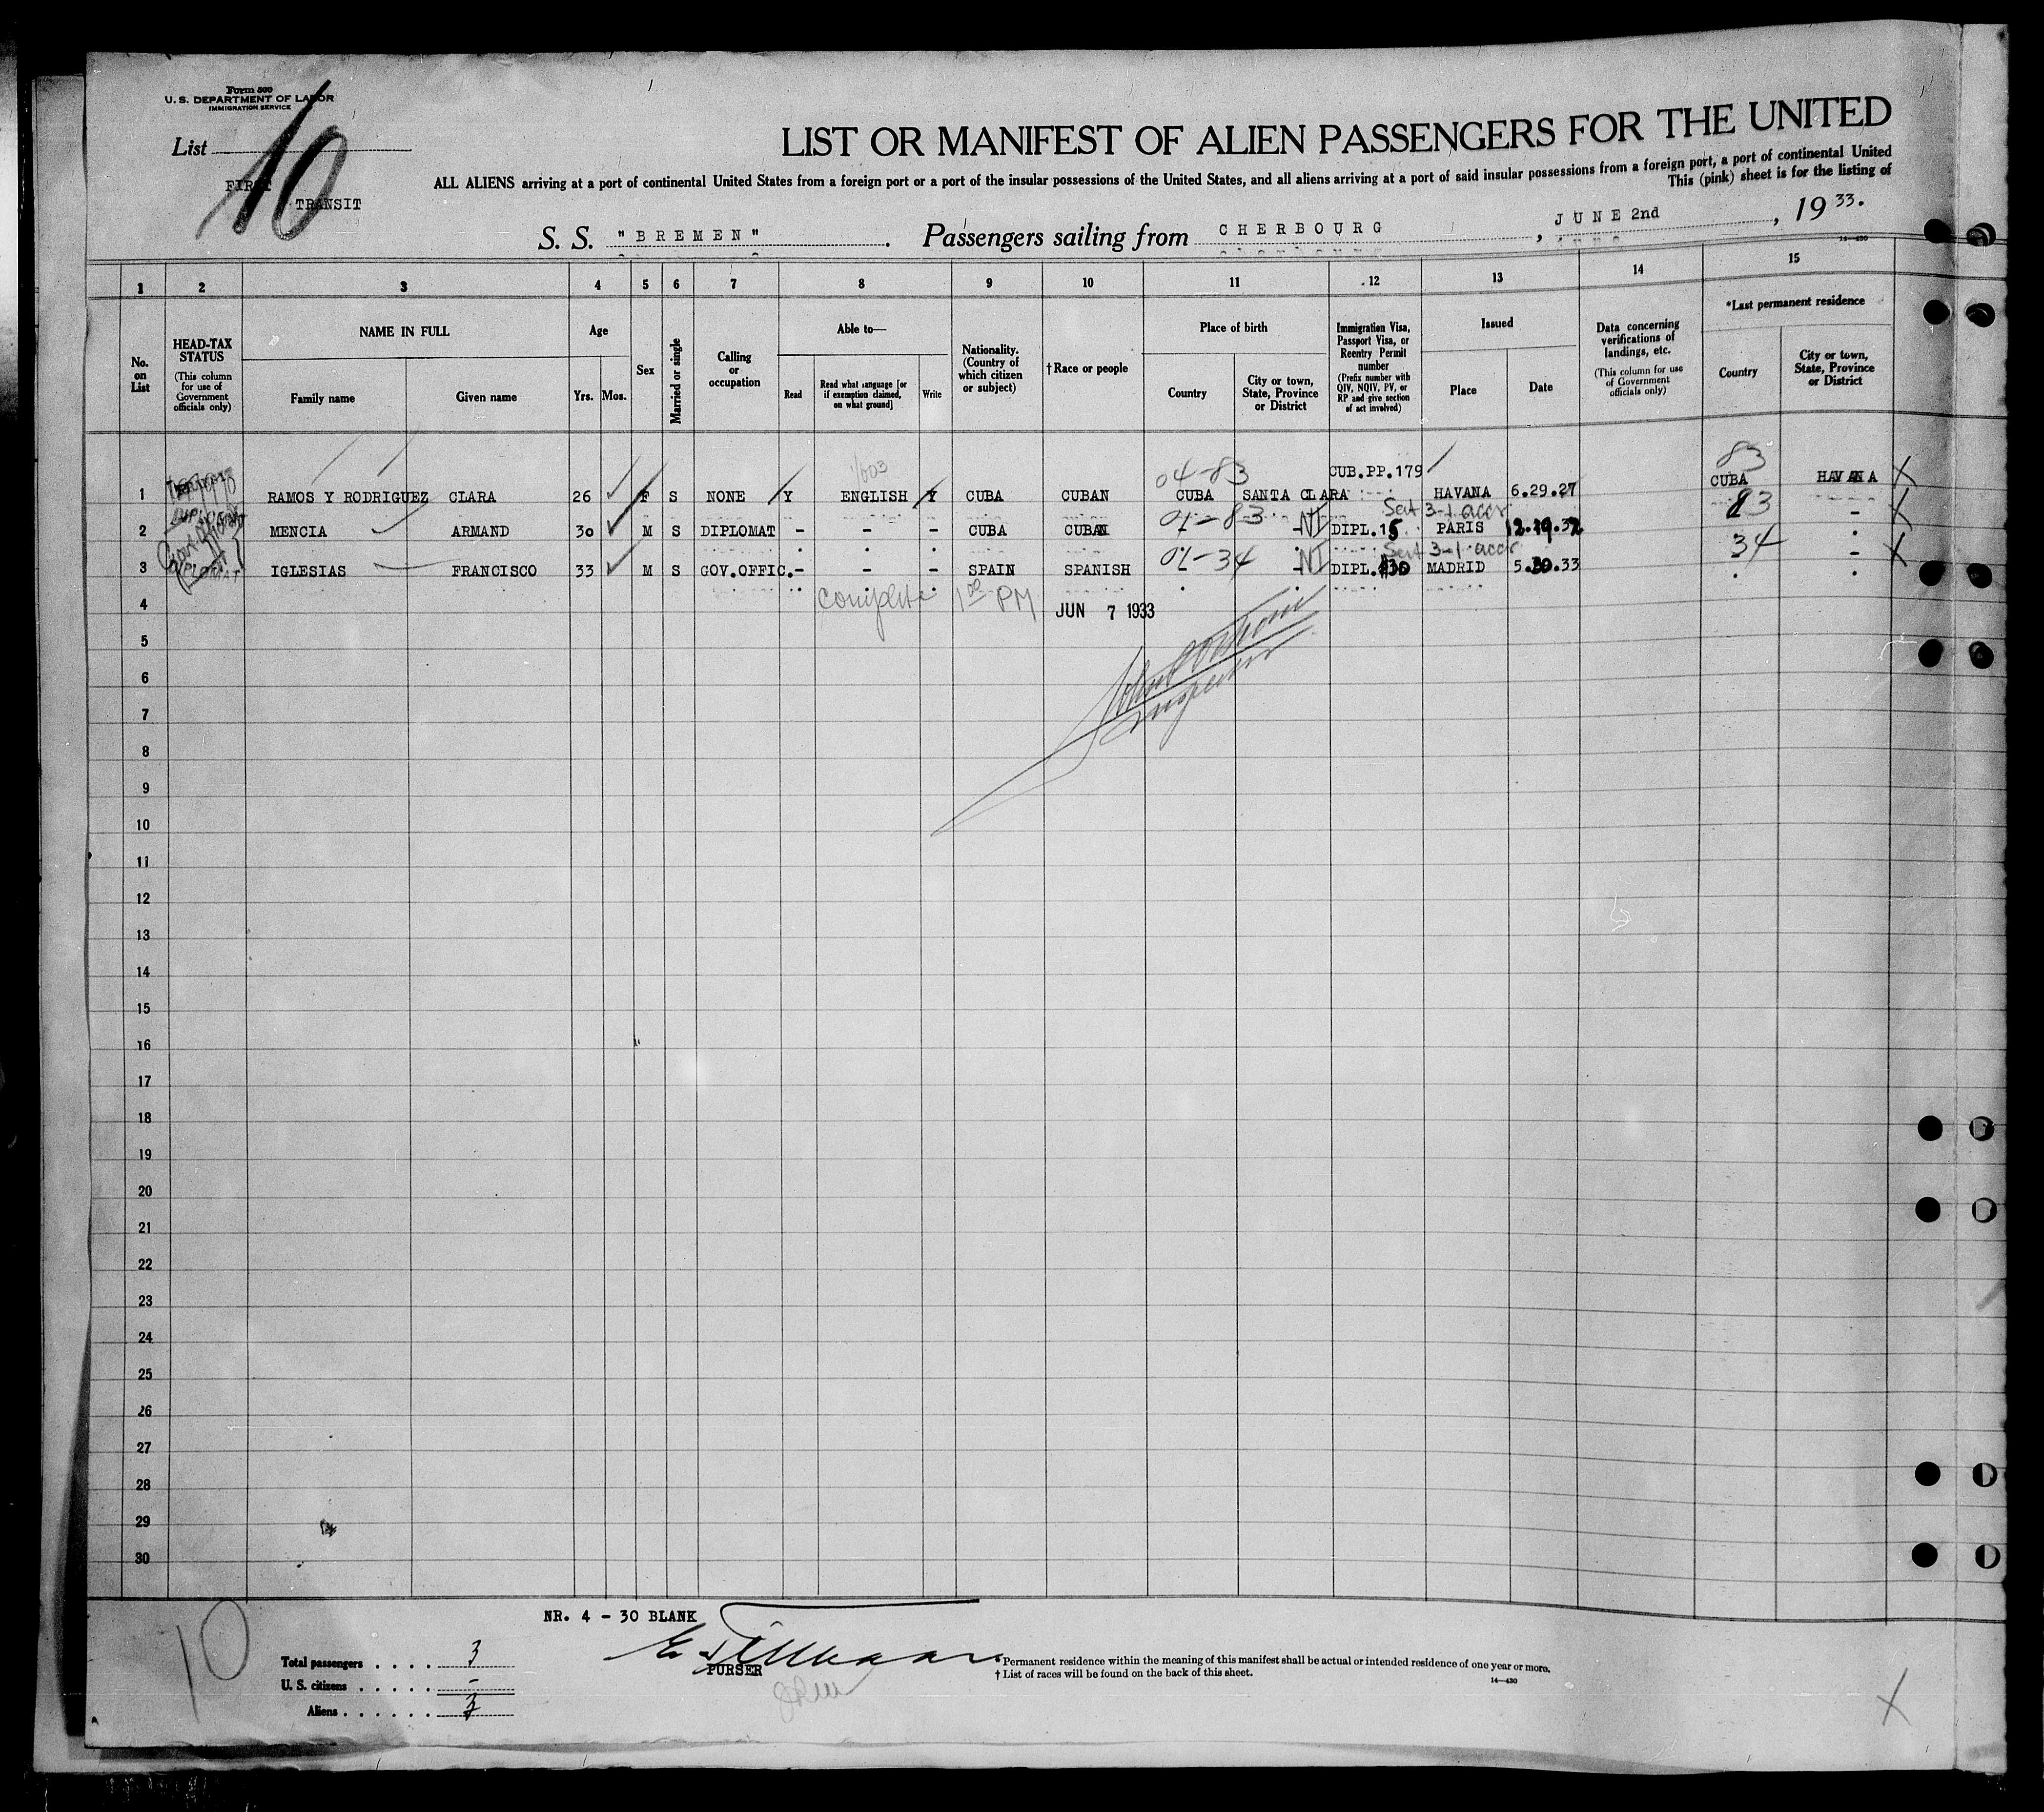 Form 500
U. S. DEPARTMENT OF LABOR
IMMIGRATION SERVICE
List 10
FIRST
TRANSIT
LIST OR MANIFEST OF ALIEN PASSENGERS FOR THE UNITED
ALL ALIENS arriving at a port of continental United States from a foreign port or a port of the insular possessions of the United States, and all aliens arriving at a port of said insular possessions from a foreign port, a port of continental United
This (pink) sheet is for the listing of
S. S. "BREMEN". Passengers sailing from CHERBOURG, JUNE 2nd, 19 33.
14—430
1 2 3 4 5 6 7 8 9 10 11 12 13 14 15
No. on List
HEAD-TAX STATUS
(This column for use of Government officials only)
NAME IN FULL
Family name
Given name
Age
Yrs. Mos.
Sex
Married or single
Calling or occupation
Able to—
Read
Read what language [or if exemption claimed, on what ground]
Write
Nationality. (Country of which citizen or subject)
† Race or people
Place of birth
Country
City or town, State, Province or District
Immigration Visa, Passport Visa, or Reentry Permit number
(Prefix number with QIV, NQIV, PV, or RP and give section of act involved)
Issued
Place
Date
Data concerning verifications of landings, etc.
(This column for use of Government officials only)
*Last permanent residence
Country
City or town, State, Province or District
04-83 CUB.PP.179 83
1 RAMOS Y RODRIGUEZ CLARA 26 F S NONE Y ENGLISH Y CUBA CUBAN CUBA SANTA CLARA HAVANA 6.29.27 CUBA HAVANA X
01-83 Sect 3-1 accr 83
2 MENCIA ARMAND 30 M S DIPLOMAT - - - CUBA CUBAN - NI DIPL.15 PARIS 12.19.32 - X
01-34 Sect 3-1 accr 34
3 DIPLOMAT IGLESIAS FRANCISCO 33 M S GOV.OFFIC. - - - SPAIN SPANISH - NI DIPL. MADRID 5.30.33 - X
4 complete 1 00 PM JUN 7 1933
Inspector
5
6
7
8
9
10
11
12
13
14
15
16
17
18
19
20
21
22
23
24
25
26
27
28
29
30
NR. 4 - 30 BLANK
10
Total passengers . . . . 3
U. S. citizens . . . . . -
Aliens . . . . . . 3
PURSER
*Permanent residence within the meaning of this manifest shall be actual or intended residence of one year or more.
† List of races will be found on the back of this sheet.
14—430
X